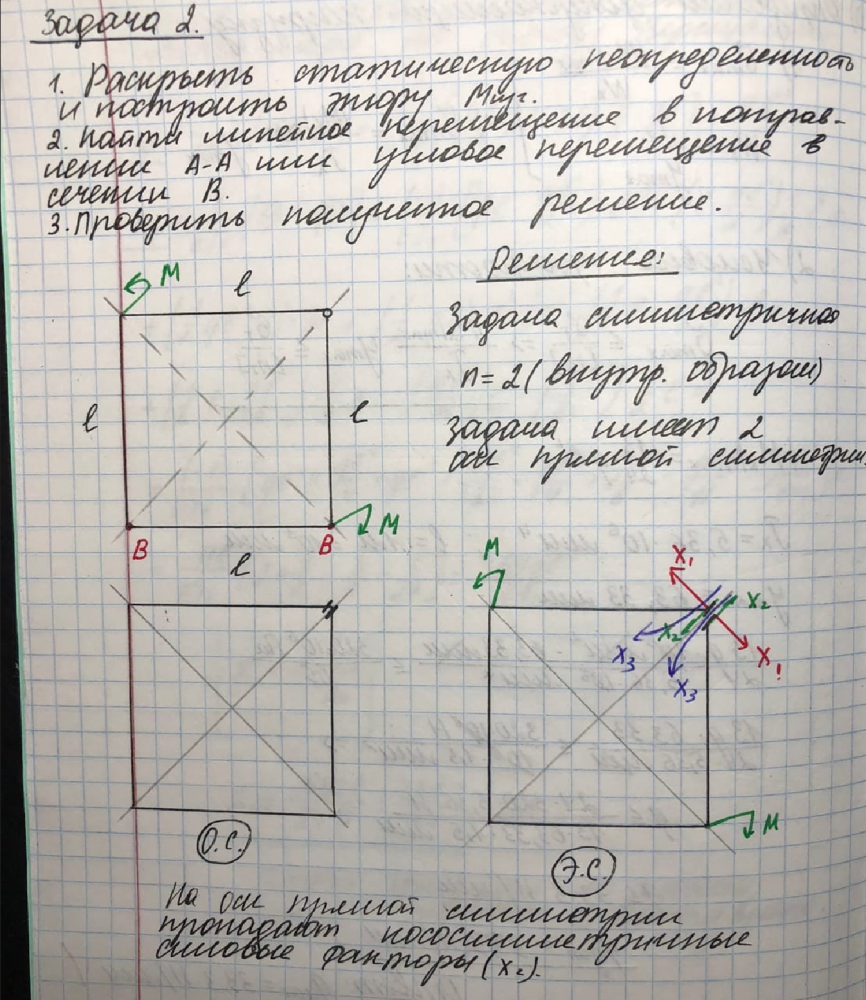 Задача 2.
1. Раскрыть статическую неопределенность
и построить эпюру Mизг.
2. Найти линейное перемещение в направ-
лении A-A или угловое перемещение в
сечении B.
3. Проверить полученное решение.
Решение:
M
l
Задача симметричная
n=2 (внутр. образом)
l
l
Задача имеет 2
оси прямой симметрии
B
B
M
l
M
X₁
X₂
X₂
X₃
X₃
X₁
M
О.С.
Э.С.
На оси прямой симметрии
пропадают кососимметричные
силовые факторы (X₂).